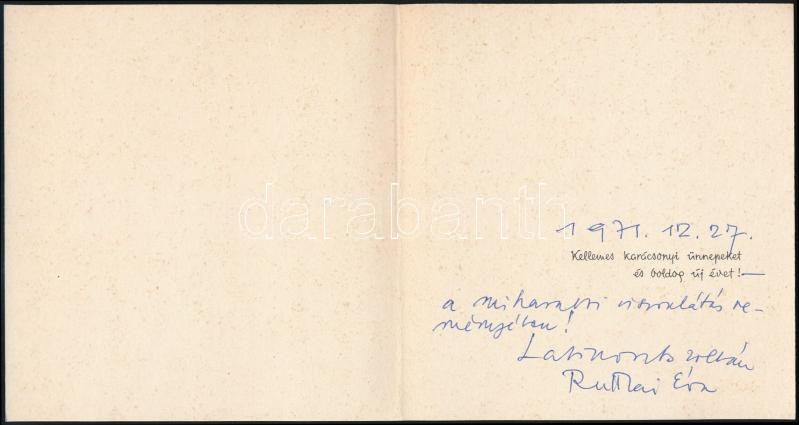 darabanth
1971. 12. 27.
Kellemes karácsonyi ünnepeket
és boldog új évet! —
a miharabbi viszonlátás re-
ményében!
Latinovits Zoltán
Ruttkai Éva